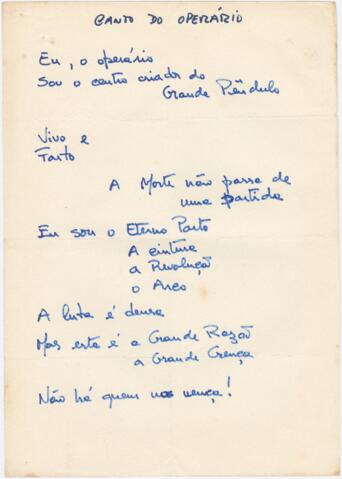 CANTO DO OPERÁRIO
Eu, o operário
Sou o centro criador do
Grande Pêndulo
Vivo e
Farto
A Morte não passa de
uma partida
Eu sou o Eterno Parto
A cintura
a Revolução
o Arco
A luta é densa
Mas esta é a Grande Razão
a Grande Crença
Não há quem nos vença!